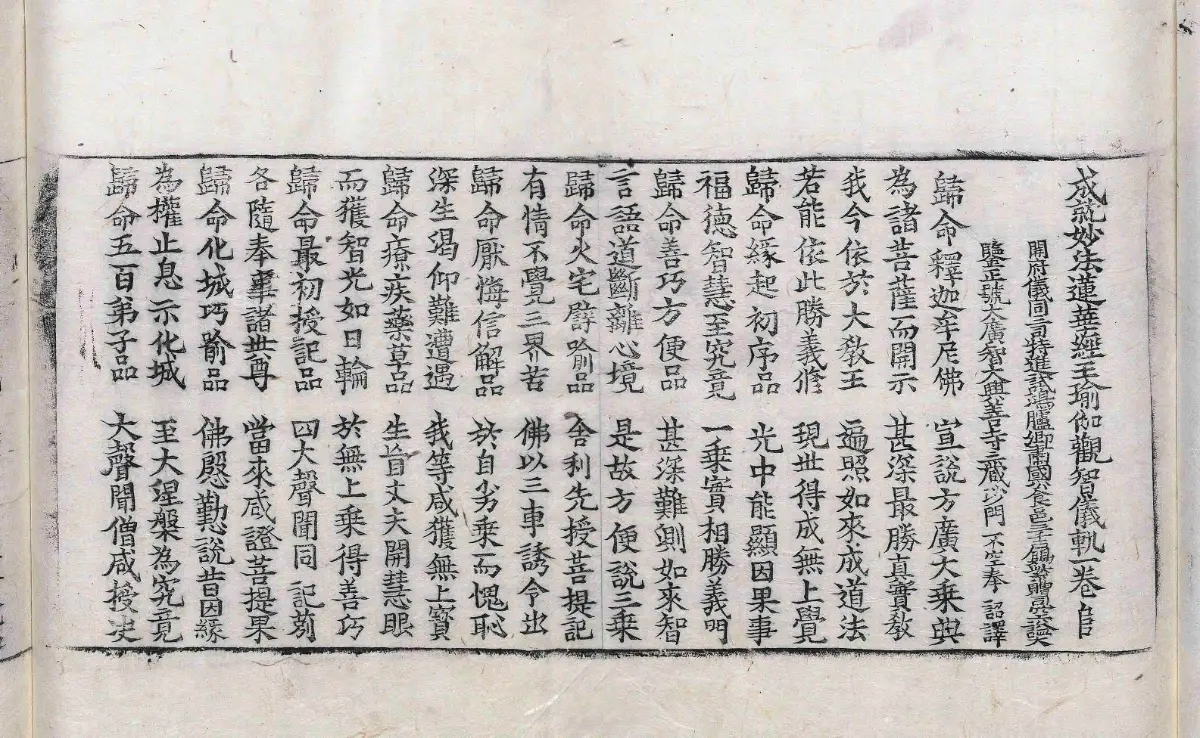 成就妙法蓮華經王瑜伽觀智儀軌一卷
開府儀同三司特進試鴻臚卿肅國公食邑三千戶賜紫贈司空
謚大鑒正號大廣智大興善寺三藏沙門不空奉 詔譯
歸命釋迦牟尼佛 宣說方廣大乘典
為諸菩薩而開示 甚深最勝真實教
我今依於大教王 遍照如來成道法
若能依此勝義修 現世得成無上覺
歸命緣起初序品 光中能顯因果事
福德智慧至究竟 一乘實相勝義門
歸命善巧方便品 甚深難測如來智
言語道斷離心境 是故方便說三乘
歸命火宅譬喻品 舍利先授菩提記
有情不覺三界苦 佛以三車誘令出
歸命厭悔信解品 於自劣乘而愧恥
深生渴仰難遭遇 我等咸獲無上寶
歸命療疾藥草品 生盲丈夫開慧眼
而獲智光如日輪 於無上乘得善巧
歸命最初授記品 四大聲聞同記莂
各隨奉事諸世尊 當來咸證菩提果
歸命化城巧喻品 佛慇懃說昔因緣
為權止息示化城 至大涅槃為究竟
歸命五百弟子品 大聲聞僧咸授決